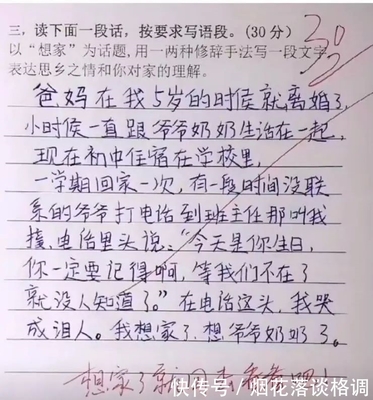 三，读下面一段话，按要求写语段。(30分)
以“想家”为话题，用一两种修辞手法写一段文字，
表达思乡之情和你对家的理解。
爸妈在我5岁的时候就离婚了，
小时侯一直跟爷爷奶奶生活在一起，
现在初中住宿在学校里，
一学期回家一次，有一段时间没联
系的爷爷打电话到班主任那叫我
接，电话里头说：“今天是你生日，
你一定要记得啊，等我们不在了
就没人知道了。”在电话这头，我哭
成泪人。我想家了，想爷爷奶奶了。
想家了就回去看看吧！
快传号/烟花落谈格调